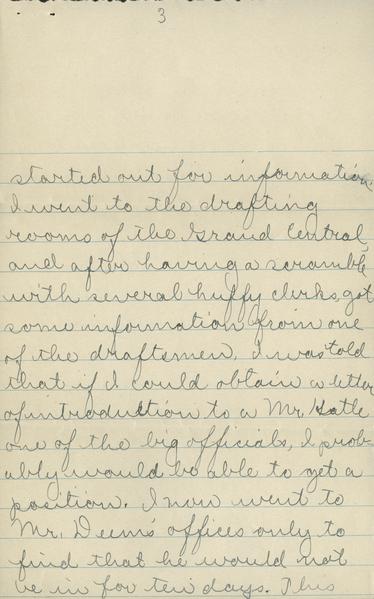 3
started out for information.
I went to the drafting
rooms of the Grand Central,
and after having a scramble
with several huffy clerks, got
some information from one
of the draftsmen. I was told
that if I could obtain a letter
of introduction to a Mr.
one of the big officials, I prob-
ably would be able to get a
position. I now went to
Mr. Deems' offices only to
find that he would not
be in for ten days. This